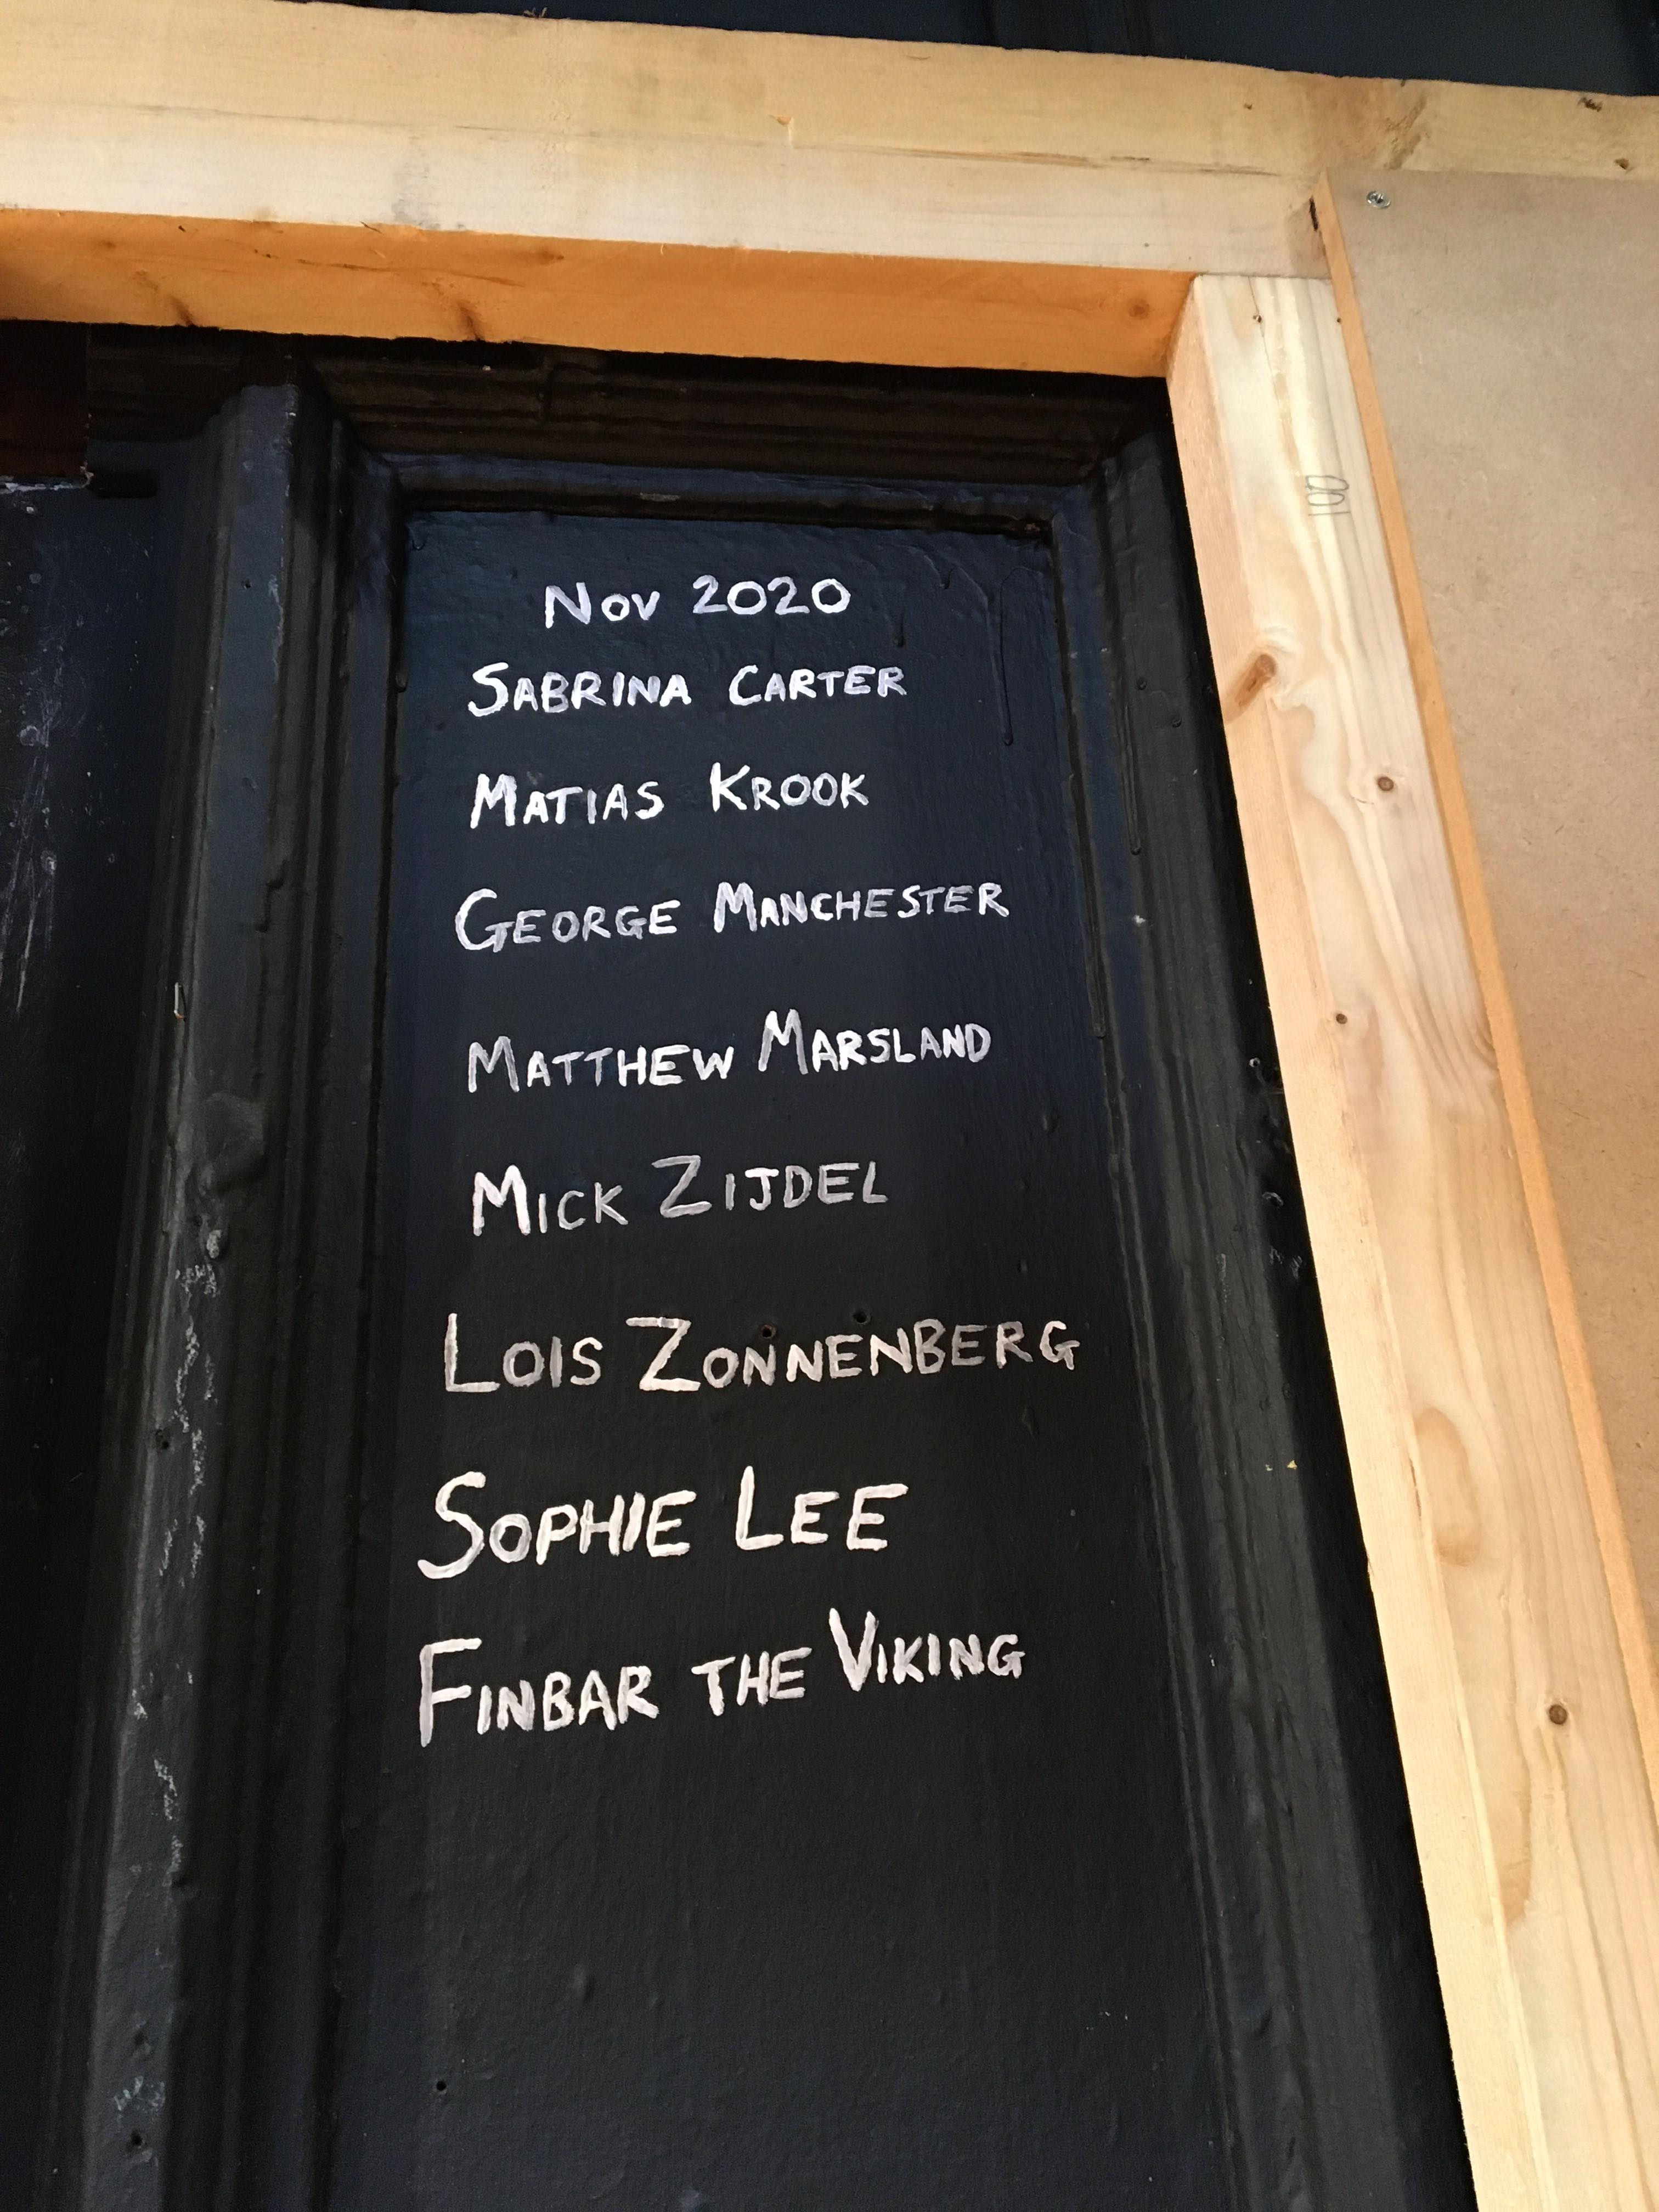 Nov 2020
SABRINA CARTER
MATIAS KROOK
GEORGE MANCHESTER
MATTHEW MARSLAND
MICK ZIJDEL
LOIS ZONNENBERG
SOPHIE LEE
FINBAR THE VIKING